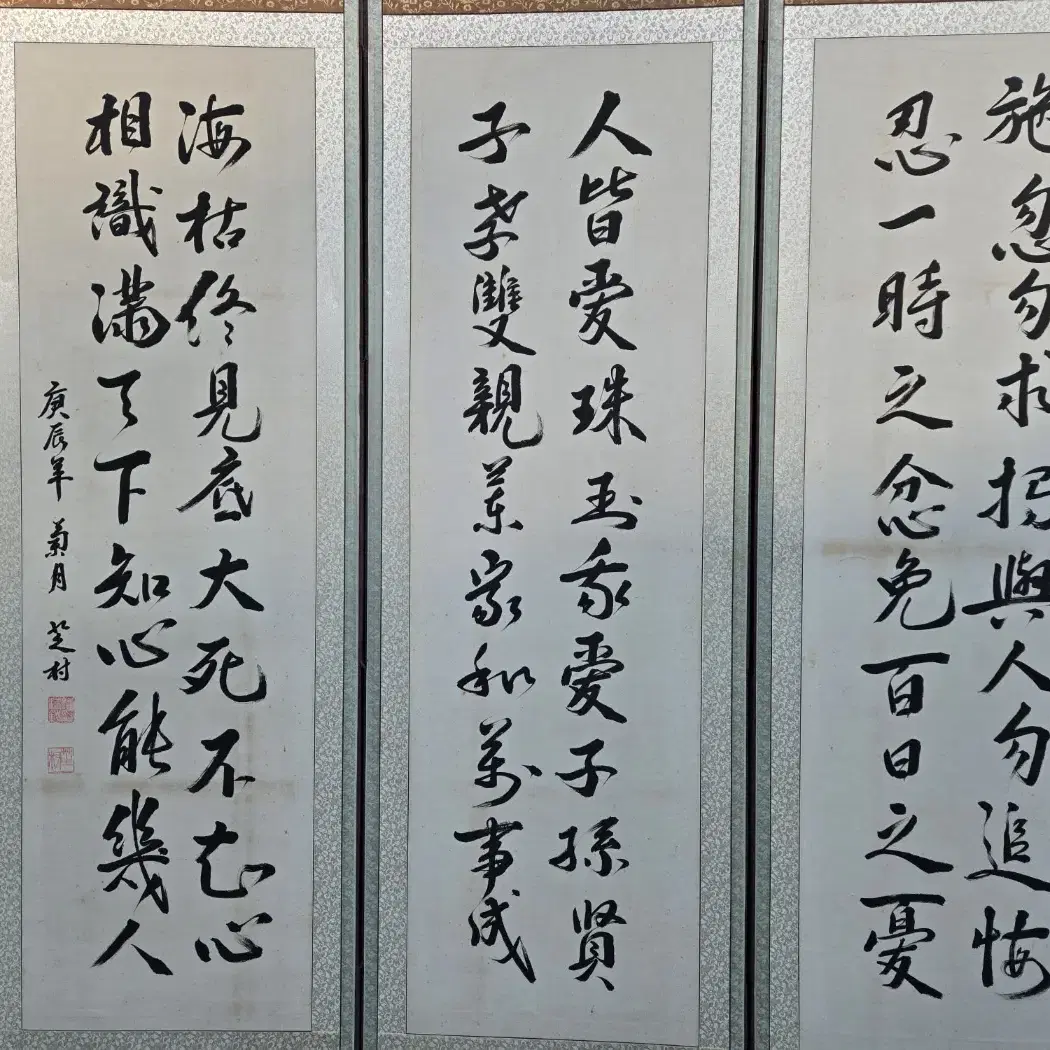 施恩勿求報與人勿追悔
忍一時之忿免百日之憂
人皆愛珠玉我愛子孫賢
子孝雙親樂家和萬事成
海枯終見底大死不知心
相識滿天下知心能幾人
庚辰年 菊月 芝村